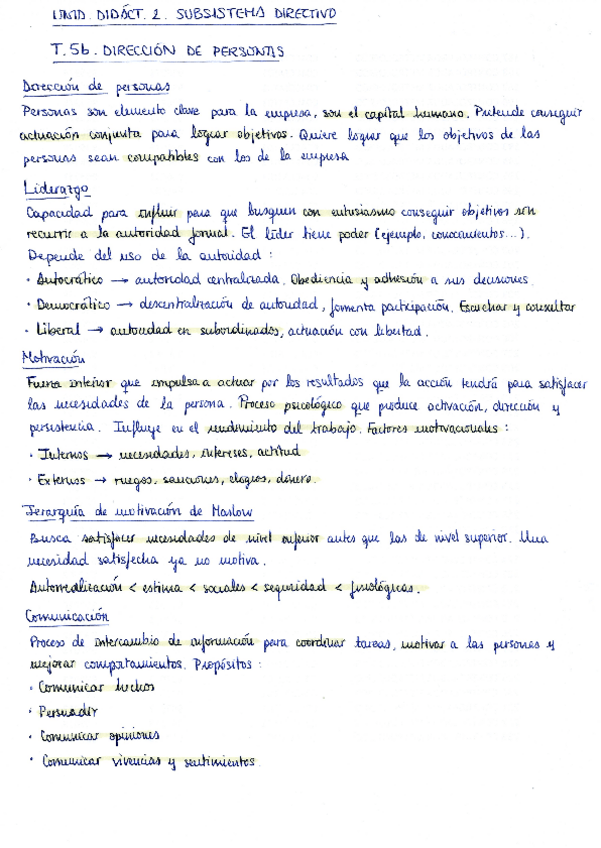 UNID. DIDÁCT. 2. SUBSISTEMA DIRECTIVO
T.5b. DIRECCIÓN DE PERSONAS
Dirección de personas
Personas son elemento clave para la empresa, son el capital humano. Pretende conseguir
actuación conjunta para lograr objetivos. Quiere lograr que los objetivos de las
personas sean compatibles con los de la empresa
Liderazgo
Capacidad para influir para que busquen con entusiasmo conseguir objetivos sin
recurrir a la autoridad formal. El líder tiene poder (ejemplo, conocimientos...).
Depende del uso de la autoridad :
· Autocrático → autoridad centralizada. Obediencia y adhesión a sus decisiones.
· Democrático → descentralización de autoridad, fomenta participación. Escuchar y consultar
· Liberal → autoridad en subordinados, actuación con libertad.
Motivación
Fuerza interior que impulsa a actuar por los resultados que la acción tendrá para satisfacer
las necesidades de la persona. Proceso psicológico que produce activación, dirección y
persistencia. Influye en el rendimiento del trabajo. Factores motivacionales :
· Internos → necesidades, intereses, actitud
· Externos → ruegos, sanciones, elogios, dinero.
Jerarquía de motivación de Maslow
Busca satisfacer necesidades de nivel inferior antes que las de nivel superior. Una
necesidad satisfecha ya no motiva.
Autorrealización < estima < sociales < seguridad < fisiológicas.
Comunicación
Proceso de intercambio de información para coordinar tareas, motivar a las personas y
mejorar comportamientos. Propósitos :
· Comunicar hechos
· Persuadir
· Comunicar opiniones
· Comunicar vivencias y sentimientos.